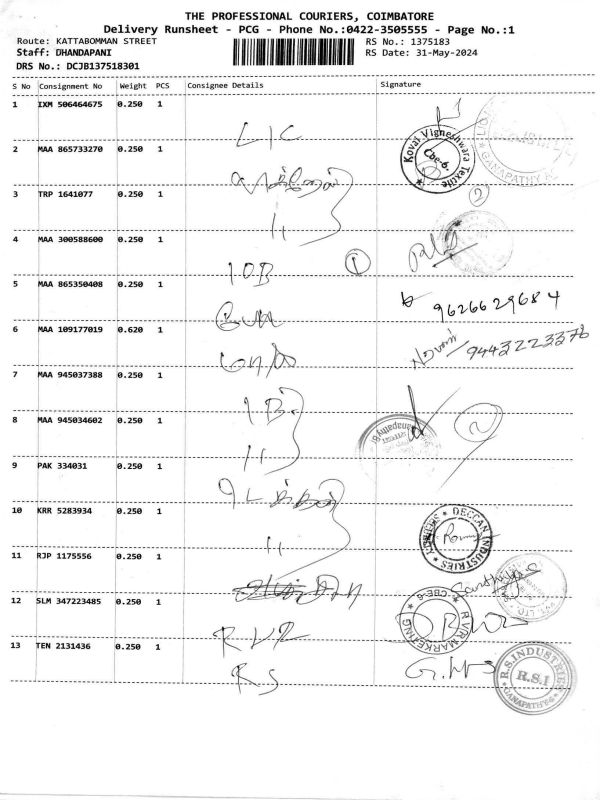 THE PROFESSIONAL COURIERS, COIMBATORE
Delivery Runsheet - PCG - Phone No.:0422-3505555 - Page No.:1
Route: KATTABOMMAN STREET RS No.: 1375183
Staff: DHANDAPANI RS Date: 31-May-2024
DRS No.: DCJB137518301
S No Consignment No Weight PCS Consignee Details Signature
1 IXM 506464675 0.250 1 LIC
2 MAA 865733270 0.250 1 Kovai Vigneshwara Textile Cbe-6. GANAPATHY
3 TRP 1641077 0.250 1 11 2
4 MAA 300588600 0.250 1 IOB 1
5 MAA 865350408 0.250 1 9626629684
6 MAA 109177019 0.620 1 9443223376
7 MAA 945037388 0.250 1 IB
8 MAA 945034602 0.250 1 11 2
9 PAK 334031 0.250 1
10 KRR 5283934 0.250 1 11 DECCAN INDUSTRIES
11 RJP 1175556 0.250 1
12 SLM 347223485 0.250 1 RVR R.V.R MARKETING CBE-6
13 TEN 2131436 0.250 1 RS R.S.INDUSTRIES R.S.I GANAPATHY